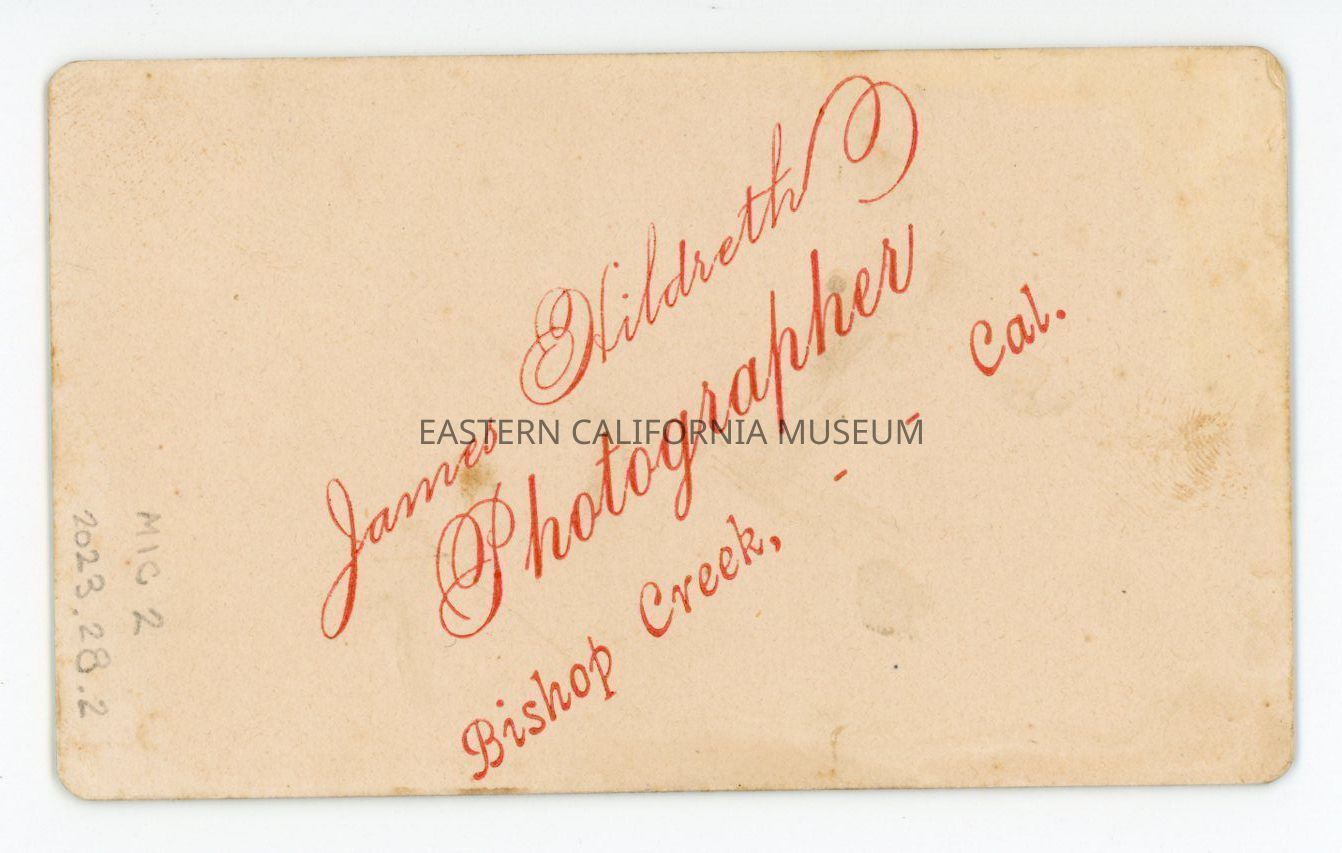 James Hildreth
Photographer
Bishop Creek, - - Cal.
EASTERN CALIFORNIA MUSEUM
MIG 2
2023.28.2